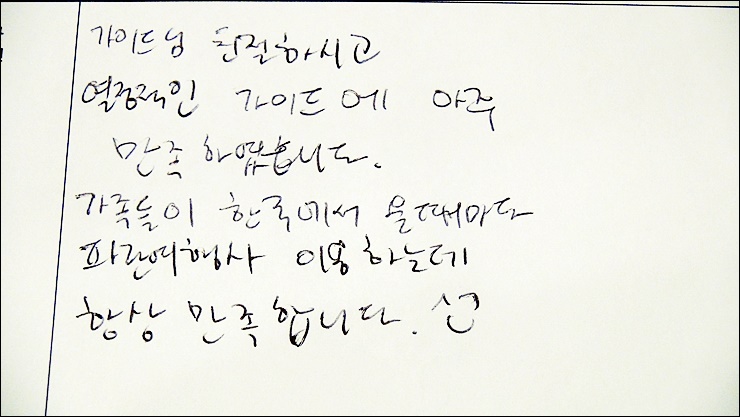 가이드님 친절하시고
열정적인 가이드에 아주
만족하였습니다.
가족들이 한국에서 올때마다
파란여행사 이용하는데
항상 만족합니다.